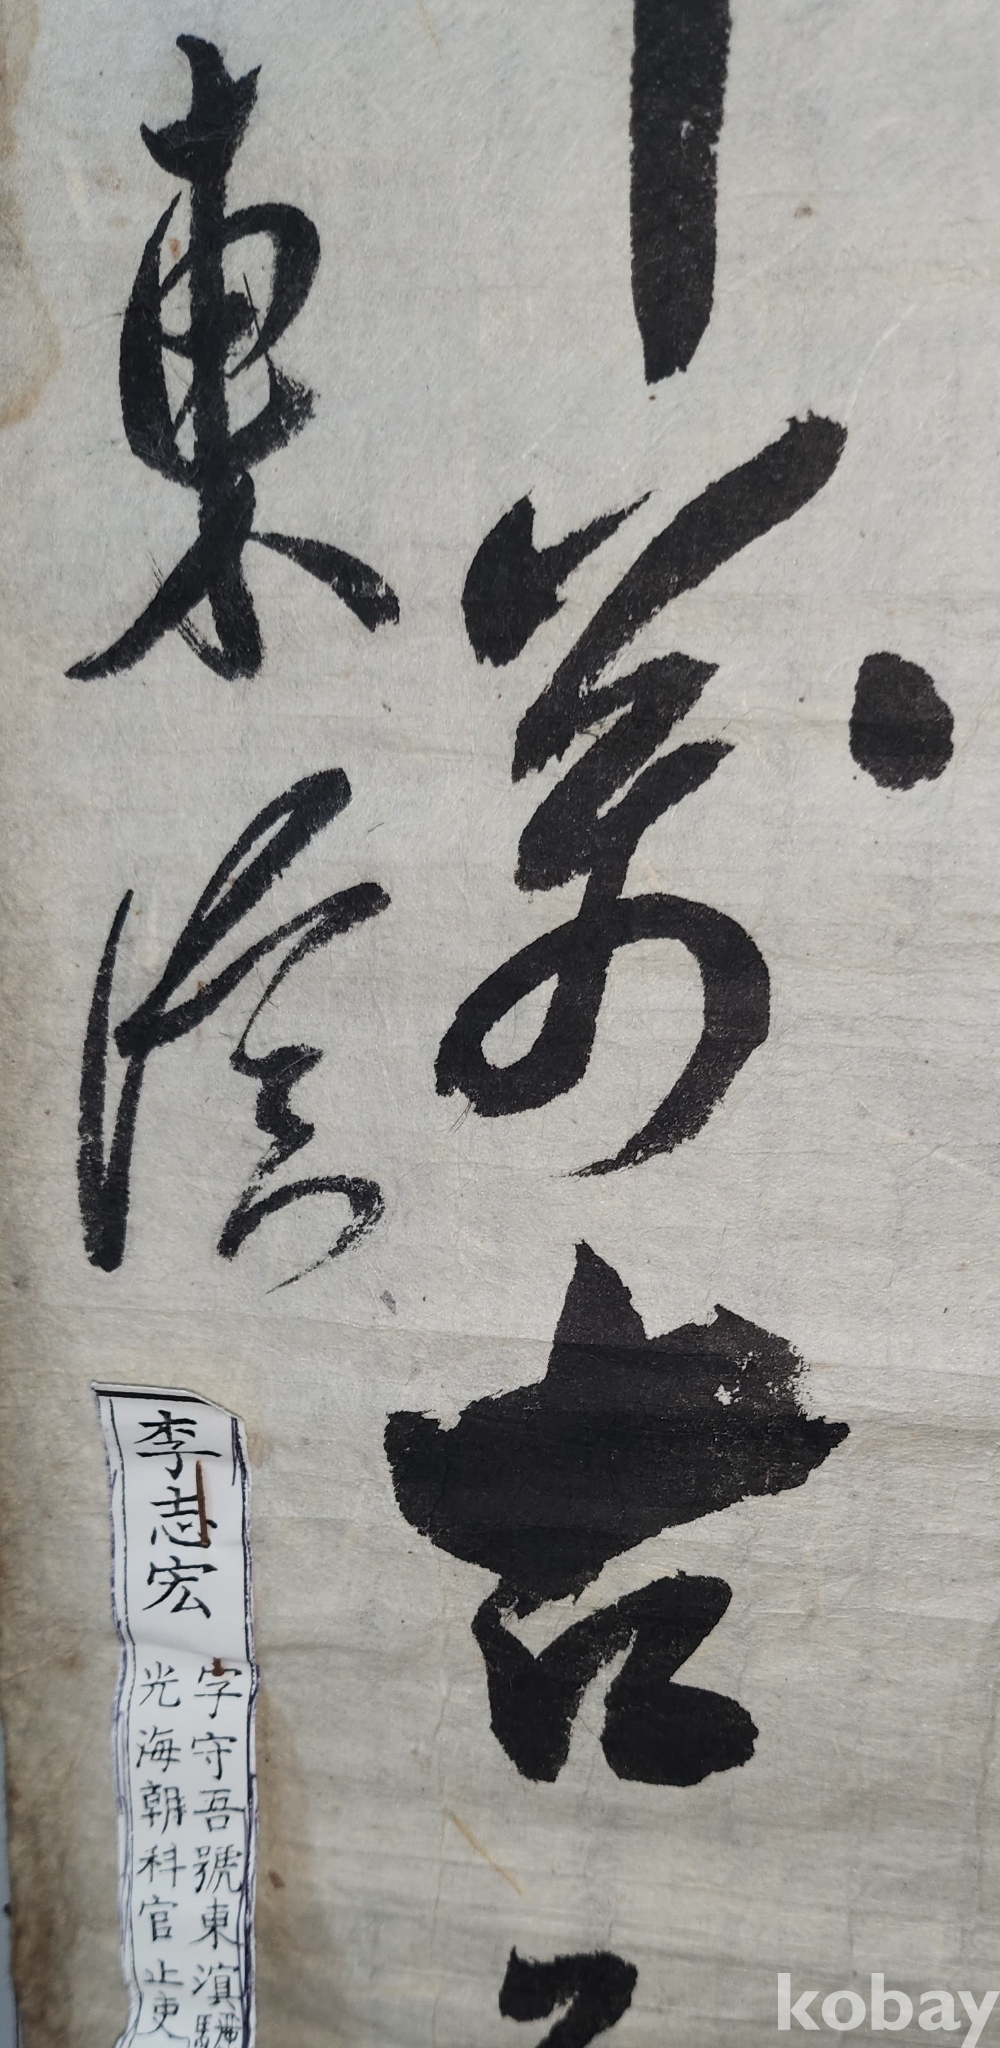 萬古
東溟
李志宏
字守吾號東溟驪
光海朝科官止吏
kobay